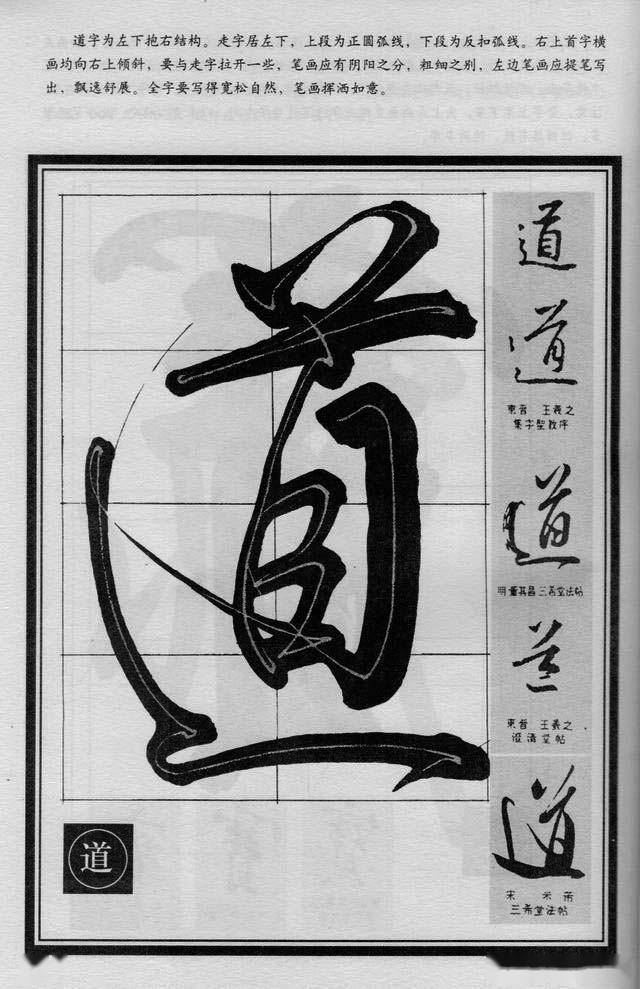 道字为左下抱右结构。走字居左下，上段为正圆弧线，下段为反扣弧线。右上首字横
画均向右上倾斜，要与走字拉开一些，笔画应有阴阳之分，粗细之别，左边笔画应提笔写
出，飘逸舒展。全字要写得宽松自然，笔画挥洒如意。
道
道
道
東晋 王羲之
集字聖教序
道
明 董其昌 三希堂法帖
道
東晋 王羲之
澄清堂帖
道
宋 米芾
三希堂法帖
道